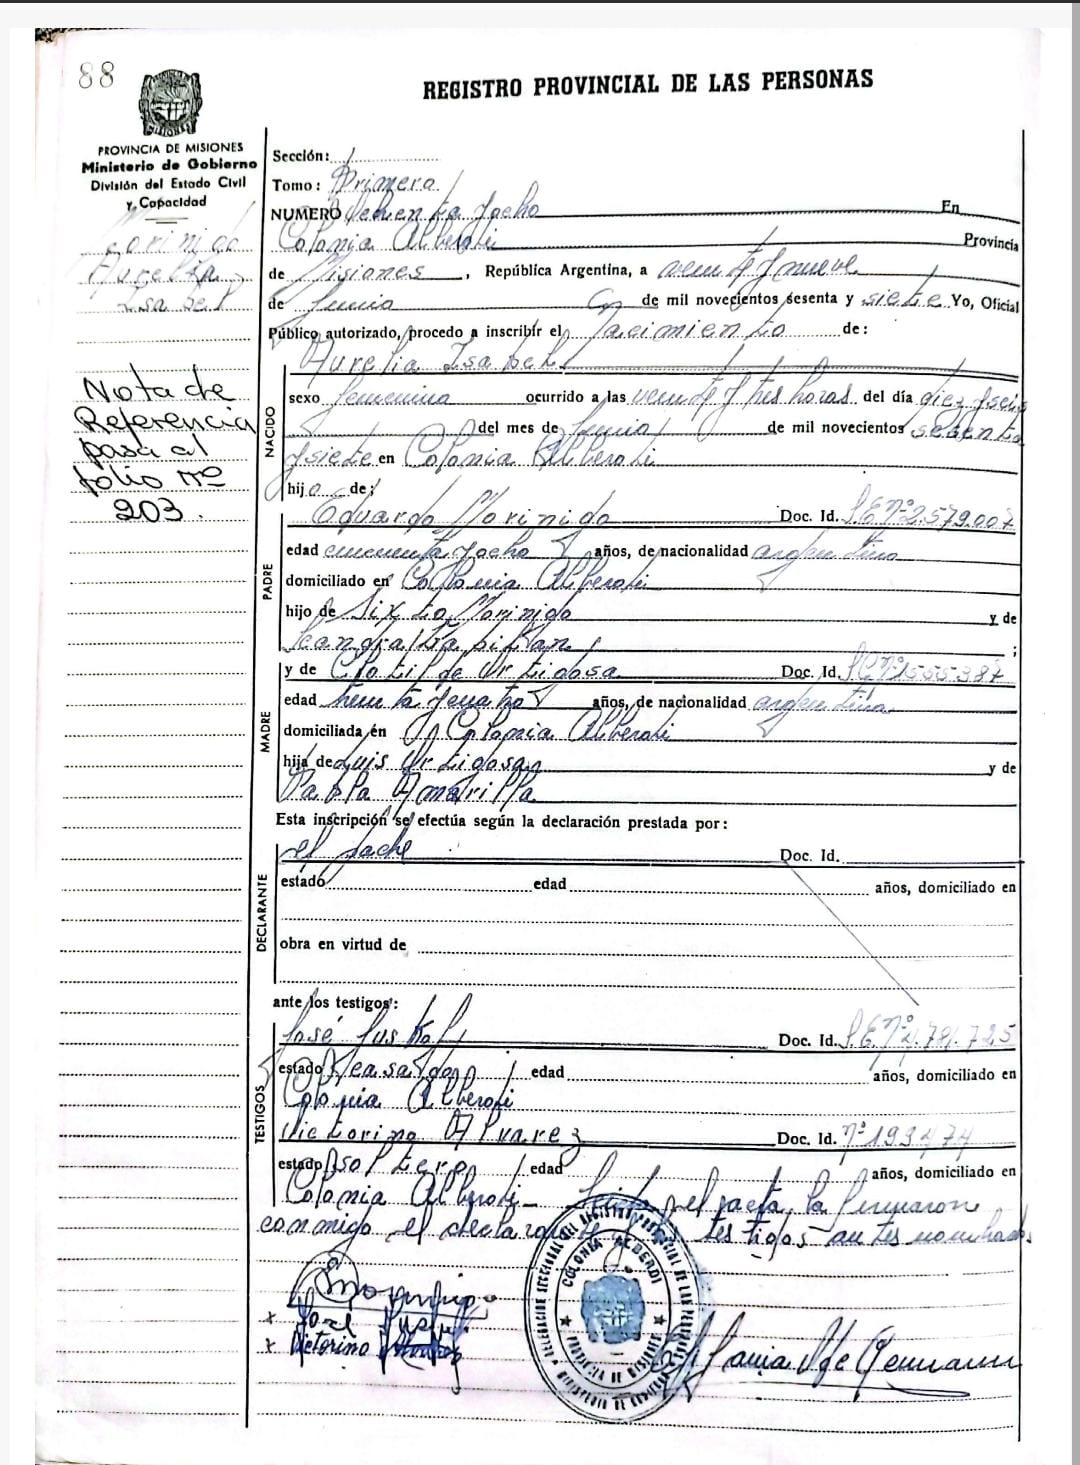 88
REGISTRO PROVINCIAL DE LAS PERSONAS
MISIONES
PROVINCIA DE MISIONES
Ministerio de Gobierno
División del Estado Civil
y Capacidad
Morinigo
Aurelia
Isabel
Nota de
Referencia
pasa al
folio Nº
203.
Sección:
Tomo: Primero
NUMERO Ochenta y ocho En
Colonia Alberdi Provincia
de Misiones, República Argentina, a veinte y nueve
de Junio de mil novecientos sesenta y siete Yo, Oficial
Público autorizado, procedo a inscribir el Nacimiento de:
Aurelia Isabel
NACIDO
sexo femenino ocurrido a las veinte y tres horas del día diez y seis
del mes de Junio de mil novecientos sesenta
y siete en Colonia Alberdi
hija de:
PADRE
Eduardo Morinigo Doc. Id. L.E. Nº 2.579.007
edad cincuenta y ocho años, de nacionalidad argentina
domiciliado en Colonia Alberdi
hijo de Sixto Morinigo y de
;
MADRE
y de Clotilde Ortigosa Doc. Id.
edad treinta y cuatro años, de nacionalidad argentina
domiciliada en Colonia Alberdi
hija de Luis Ortigosa y de
Pabla Amarilla
Esta inscripción se efectúa según la declaración prestada por:
DECLARANTE
el padre Doc. Id.
estado edad años, domiciliado en
obra en virtud de
ante los testigos:
TESTIGOS
José Doc. Id. L.E. Nº
estado Casado edad años, domiciliado en
Colonia Alberdi
Victorino Alvarez Doc. Id. Nº 193474
estado Soltero edad años, domiciliado en
Colonia Alberdi - Leida el acta, la firmaron
conmigo el declarante y los testigos antes nombrados
José
Victorino Alvarez
DELEGACION SECCIONAL DEL REGISTRO PROVINCIAL DE LAS PERSONAS
COLONIA ALBERDI
PROVINCIA DE MISIONES
MINISTERIO DE GOBIERNO